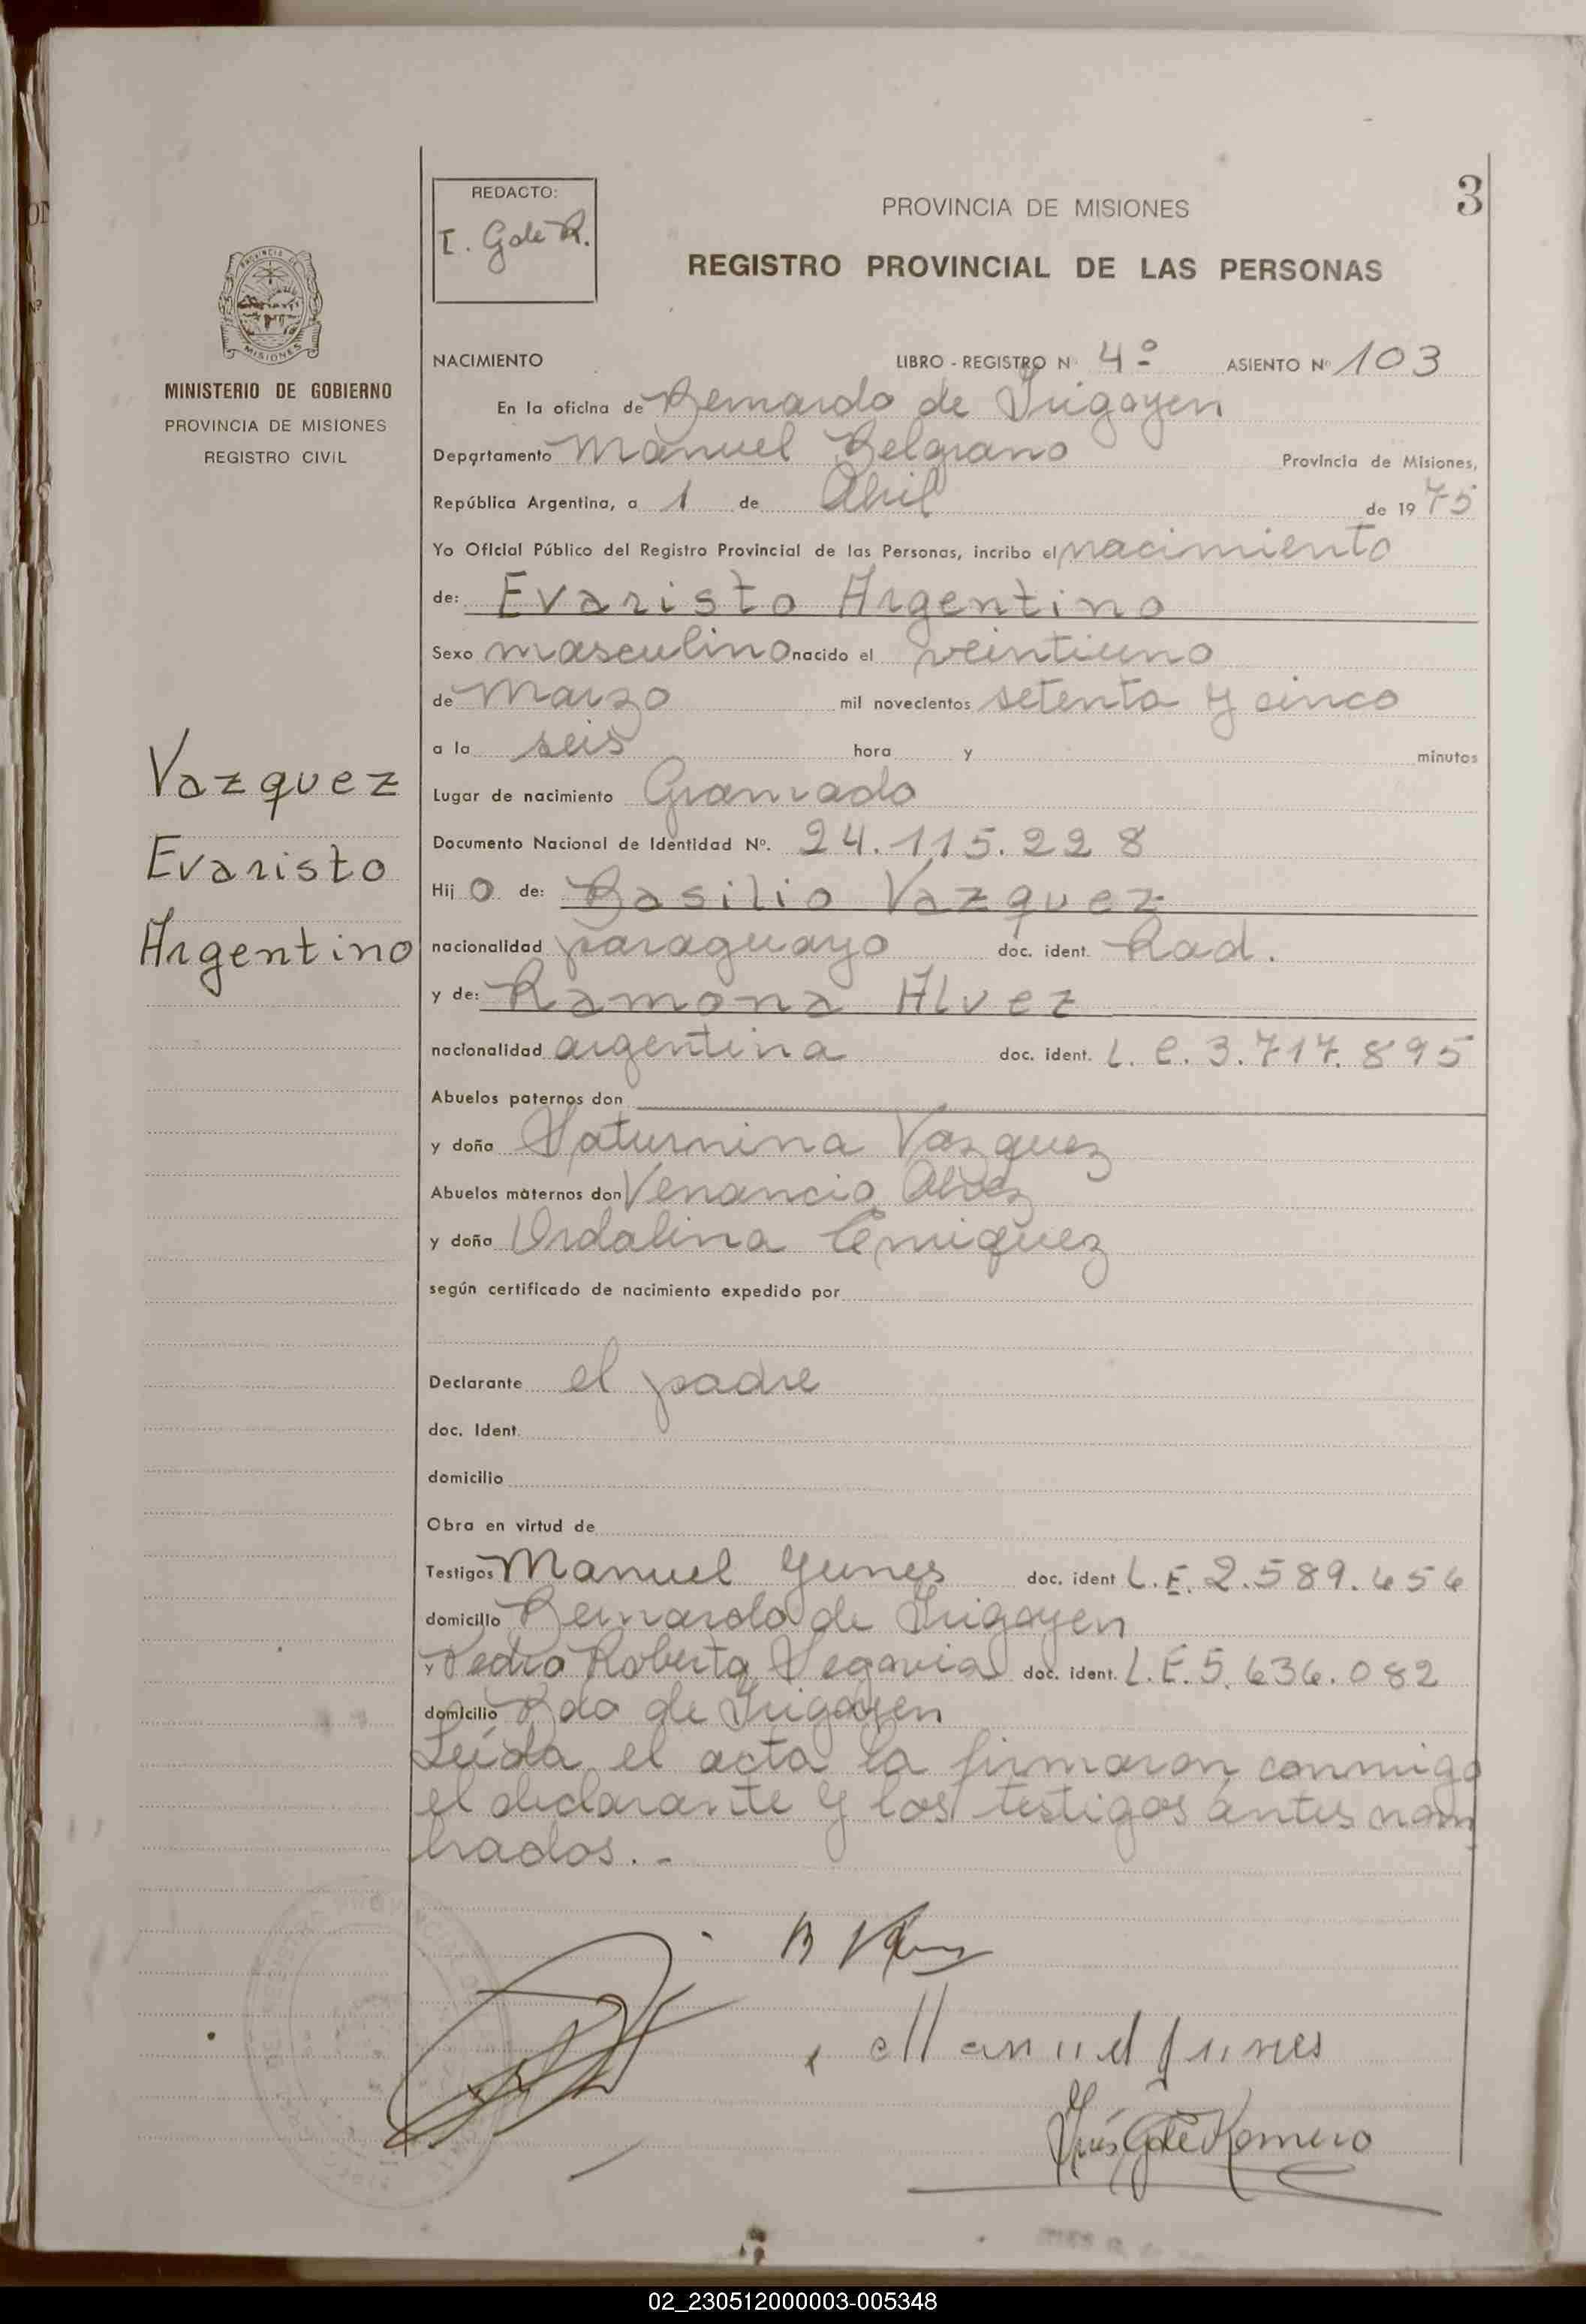 3
REDACTO:
I. G de R.
PROVINCIA DE MISIONES
REGISTRO PROVINCIAL DE LAS PERSONAS
MISIONES
MINISTERIO DE GOBIERNO
PROVINCIA DE MISIONES
REGISTRO CIVIL
NACIMIENTO LIBRO - REGISTRO Nº 4º ASIENTO Nº 103
En la oficina de Bernardo de Irigoyen
Departamento Manuel Belgrano Provincia de Misiones,
República Argentina, a 1 de Abril de 1975
Yo Oficial Público del Registro Provincial de las Personas, incribo el nacimiento
de: Evaristo Argentino
Sexo masculino nacido el veintiuno
de Marzo mil novecientos setenta y cinco
a la seis hora y minutos
Vazquez
Evaristo
Argentino
Lugar de nacimiento Gramado
Documento Nacional de Identidad Nº. 24.115.228
Hijo de: Basilio Vazquez
nacionalidad paraguayo doc. ident. Rad.
y de: Ramona Alvez
nacionalidad argentina doc. ident. L. C. 3.717.895
Abuelos paternos don
y doña Saturnina Vazquez
Abuelos maternos don Venancio Alvez
y doña Ordalina Enriquez
según certificado de nacimiento expedido por
Declarante el padre
doc. Ident.
domicilio
Obra en virtud de
Testigos Manuel Yunes doc. ident L.E. 2.589.656
domicilio Bernardo de Irigoyen
y Pedro Roberto Segovia doc. ident. L.E. 5.636.082
domicilio Bdo de Irigoyen
Leída el acta la firmaron conmigo
el declarante y los testigos antes nom
brados.-
Manuel Yunes
Inés G de Romero
02_230512000003-005348